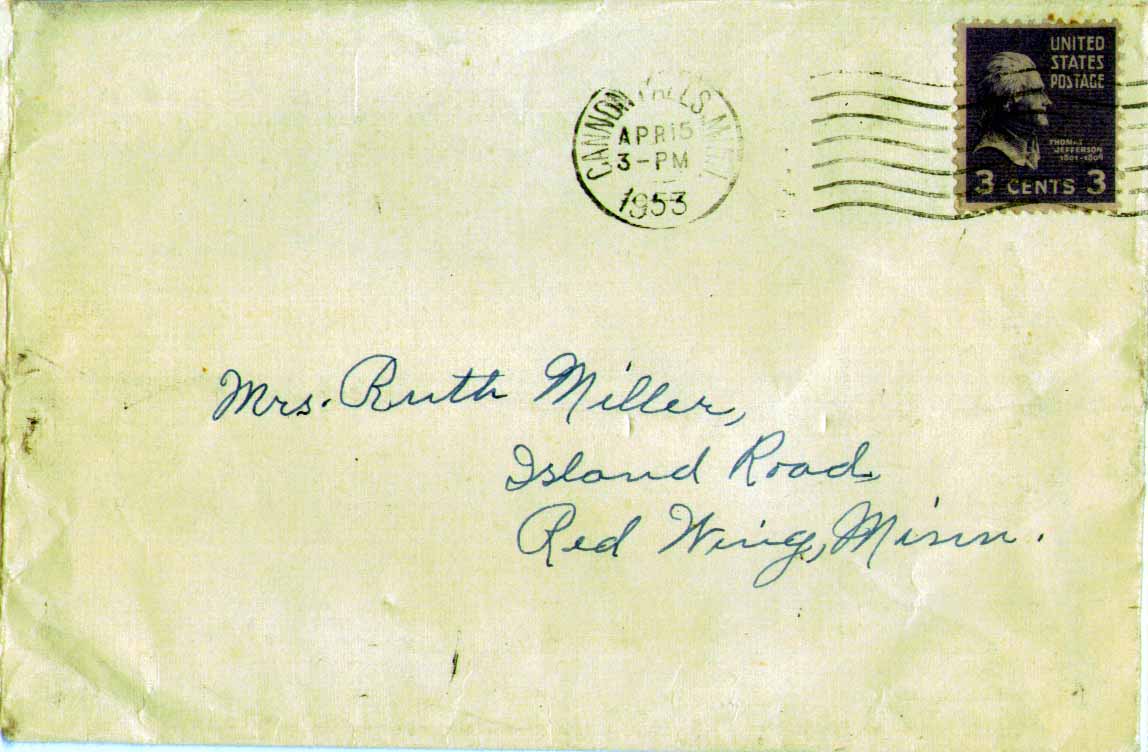 UNITED
STATES
POSTAGE
THOMAS
JEFFERSON
1801-1809
3 CENTS 3
CANNON FALLS, MINN.
APR 15
3-PM
1953
Mrs. Ruth Miller,
Island Road
Red Wing, Minn.